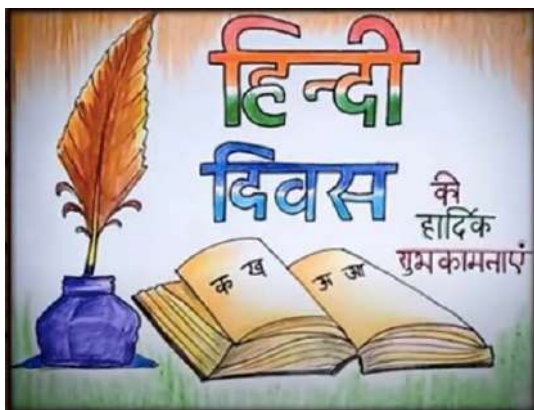 हिन्दी
दिवस
की
हार्दिक
शुभकामनाएं
क ख
ऊ आ